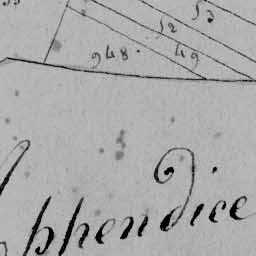 53
52
948. 49
phendice